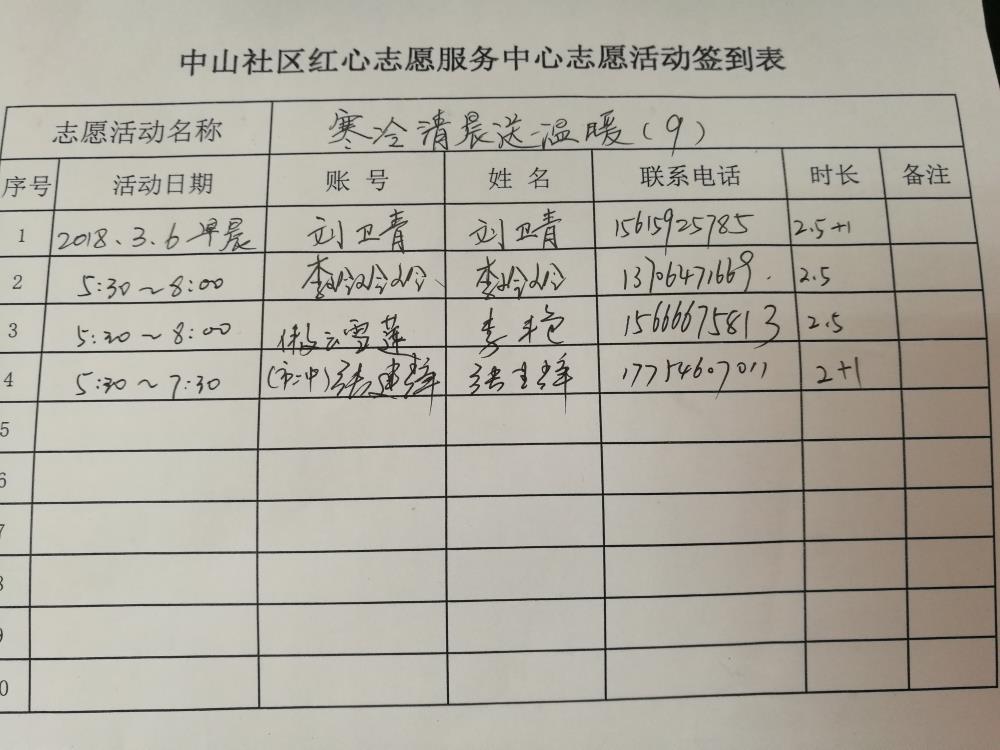 中山社区红心志愿服务中心志愿活动签到表
志愿活动名称 寒冷清晨送温暖(9)
序号 活动日期 账号 姓名 联系电话 时长 备注
1 2018.3.6早晨 刘卫青 刘卫青 15615925785 2.5+1
2 5:30~8:00 李玲玲玲、 李玲玲 13706471669. 2.5
3 5:30~8:00 傲云雪莲 李艳 15666675813 2.5
4 5:30~7:30 (市二中)张建锋 张建锋 17754607011 2+1
5
6
7
8
9
0